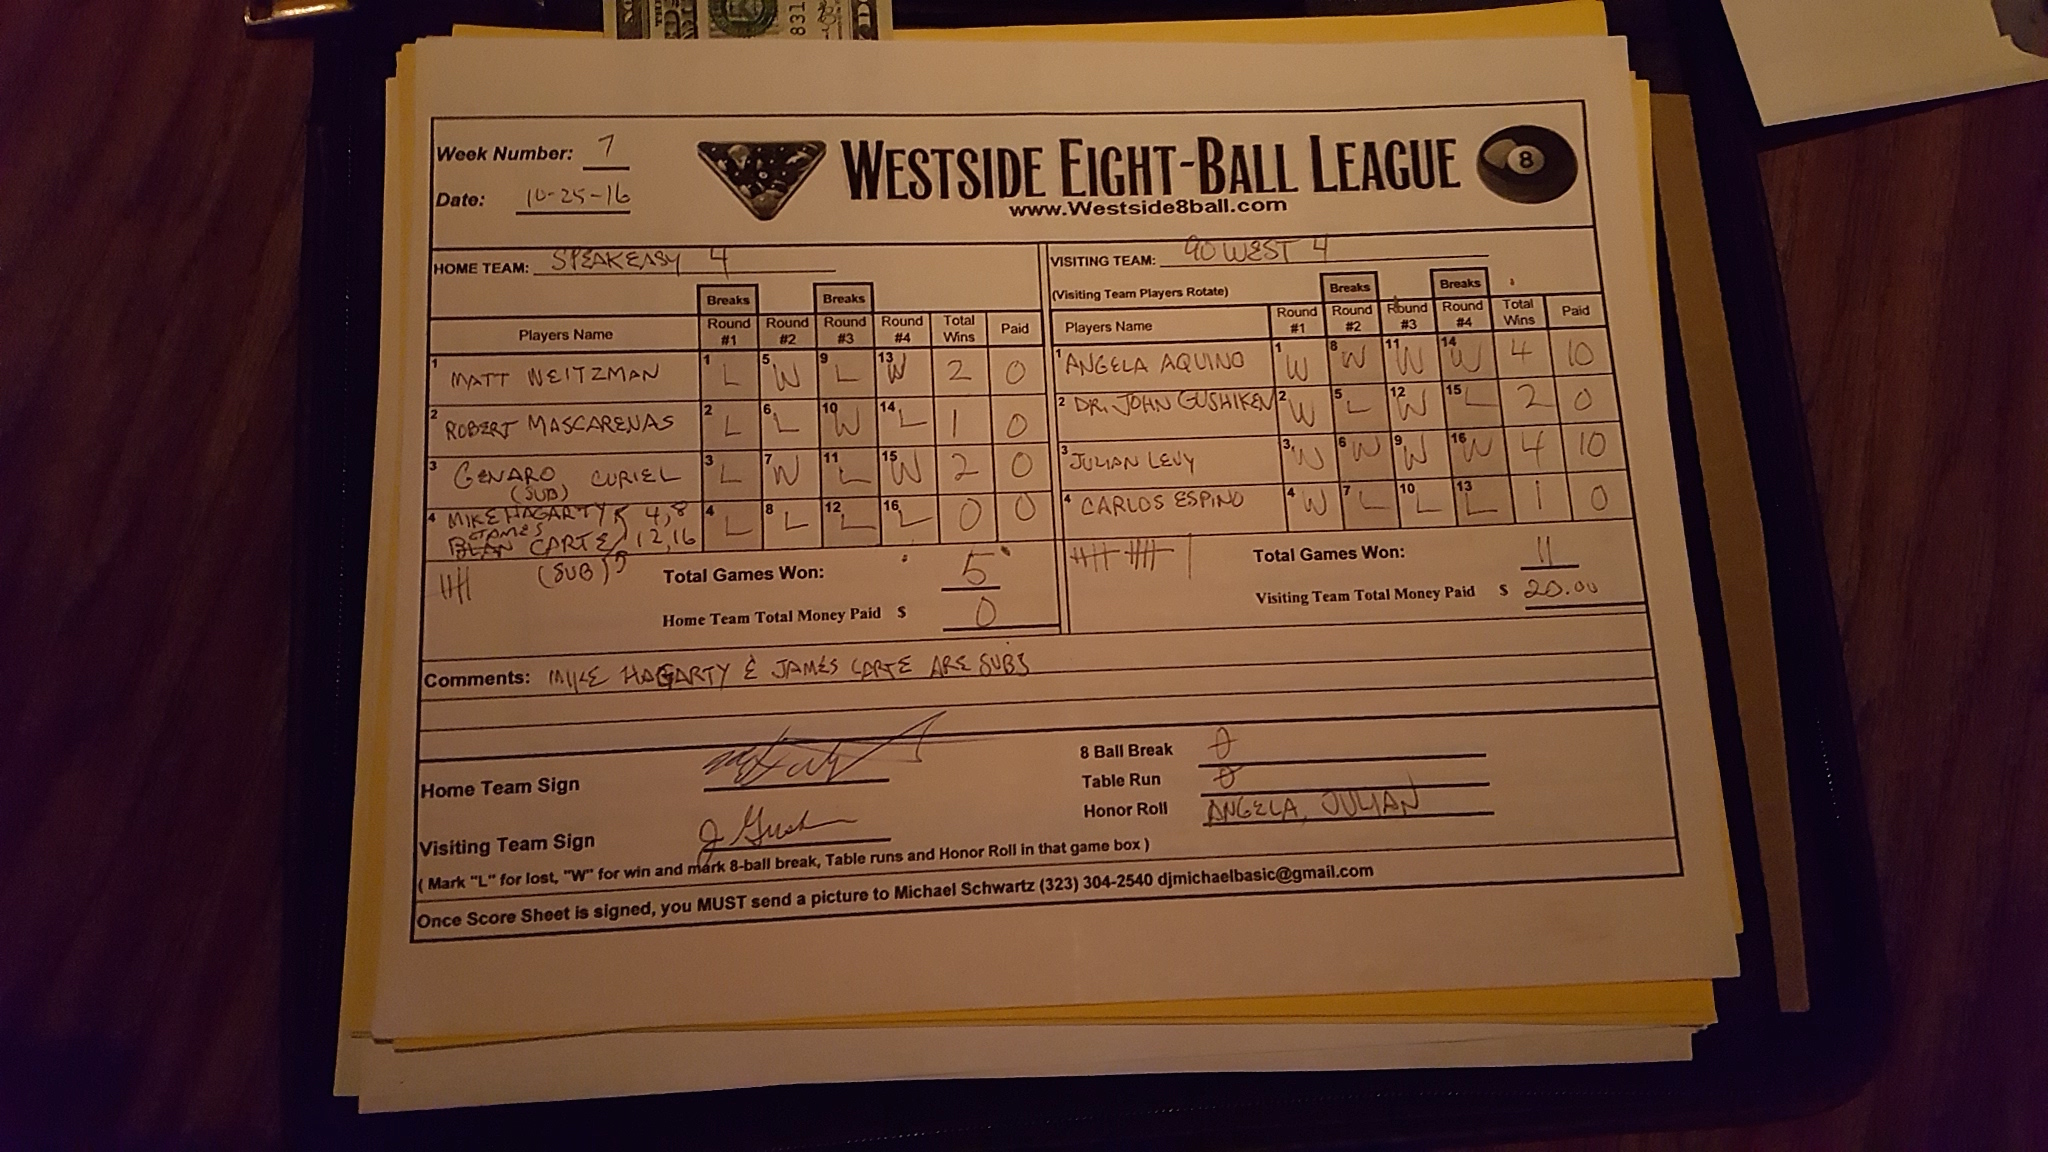 831
Week Number: 7
Date: 10-25-16
WESTSIDE EIGHT-BALL LEAGUE
8
www.Westside8ball.com
HOME TEAM: SPEAKEASY 4
VISITING TEAM: 90 WEST 4
(Visiting Team Players Rotate)
Breaks Breaks
Breaks Breaks
Players Name Round #1 Round #2 Round #3 Round #4 Total Wins Paid
1 MATT WEITZMAN 1 L 5 W 9 L 13 W 2 0
2 ROBERT MASCARENAS 2 L 6 L 10 W 14 L 1 0
3 GENARO CURIEL 3 L 7 W 11 L 15 W 2 0
(SUB)
4 MIKE HAGARTY 4,8 4 L 8 L 12 L 16 L 0 0
JAMES
CARTE 12,16
(SUB)
Total Games Won: 5
Home Team Total Money Paid $ 0
Players Name Round #1 Round #2 Round #3 Round #4 Total Wins Paid
1 ANGELA AQUINO 1 W 8 W 11 W 14 W 4 10
2 DR. JOHN GUSHIKEN 2 W 5 L 12 W 15 L 2 0
3 JULIAN LEVY 3 W 6 W 9 W 16 W 4 10
4 CARLOS ESPINO 4 W 7 L 10 L 13 L 1 0
Total Games Won: 11
Visiting Team Total Money Paid $ 20.00
Comments: MIKE HAGARTY & JAMES CARTE ARE SUBS
Home Team Sign
Visiting Team Sign J Gush
8 Ball Break 0
Table Run 0
Honor Roll ANGELA, JULIAN
( Mark "L" for lost, "W" for win and mark 8-ball break, Table runs and Honor Roll in that game box )
Once Score Sheet is signed, you MUST send a picture to Michael Schwartz (323) 304-2540 djmichaelbasic@gmail.com